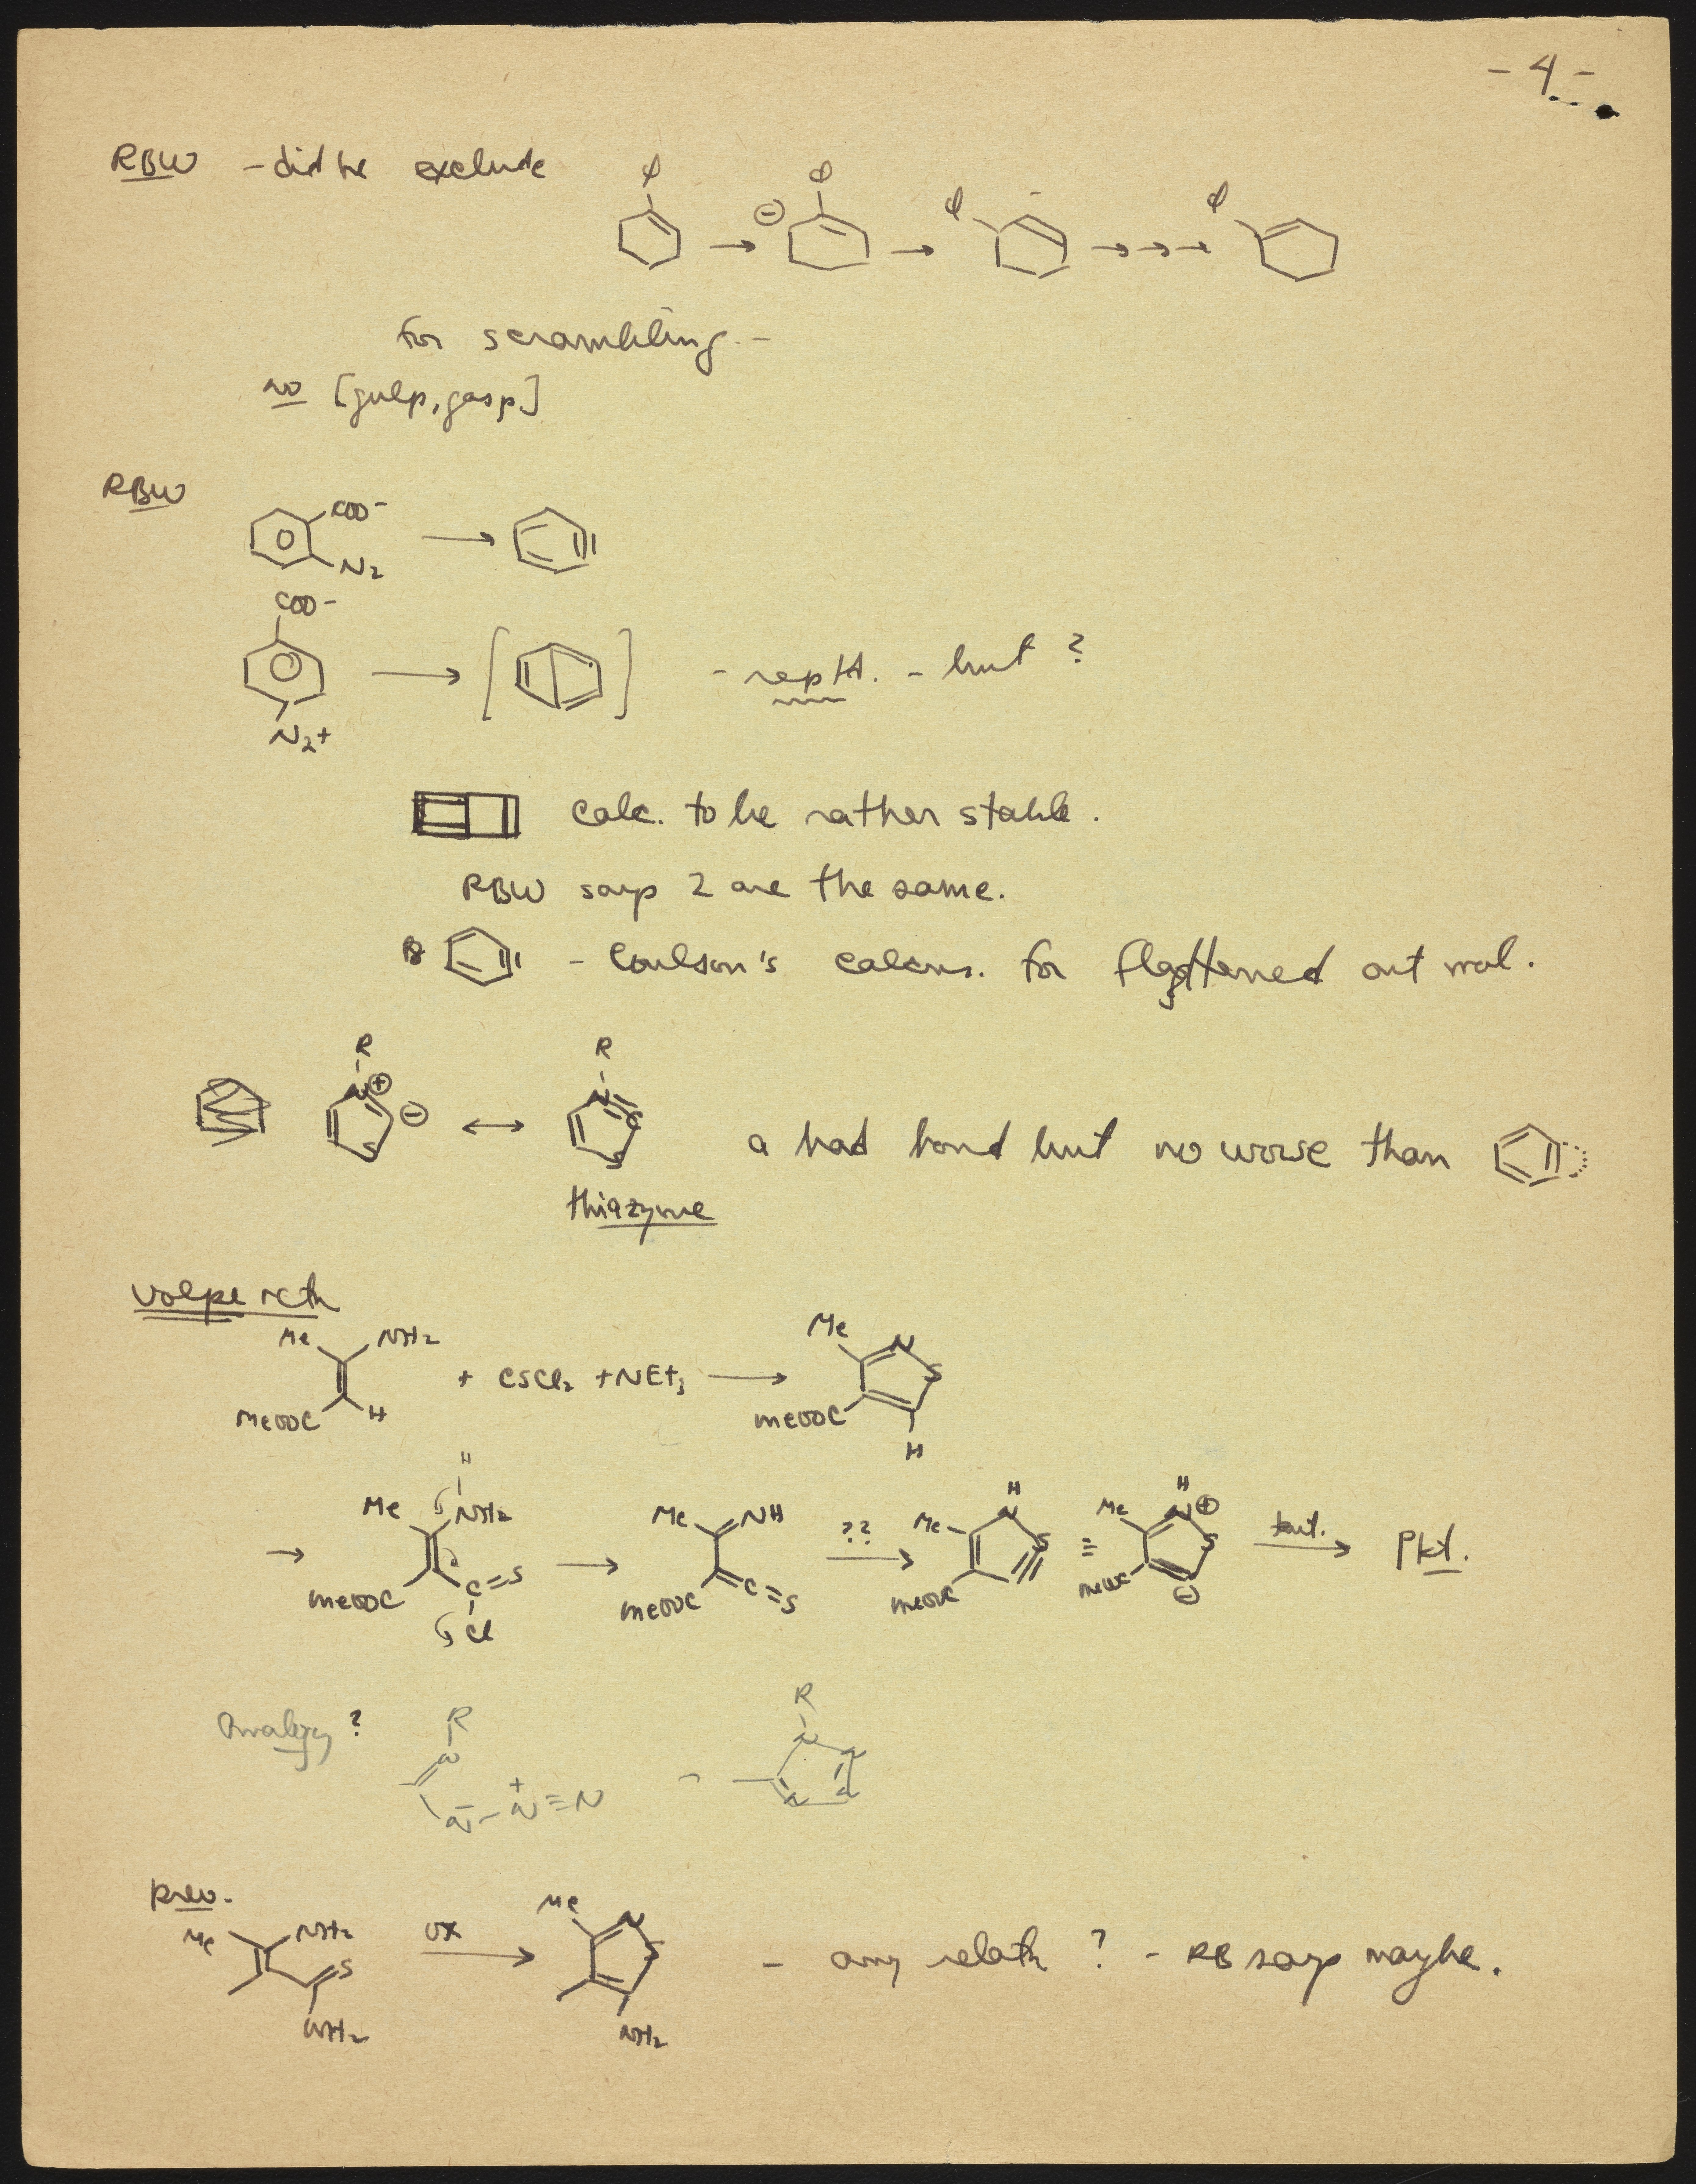 - 4 -
RBW - did he exclude
ϕ ⊖ ϕ ϕ ϕ
for scrambling -
no [gulp, gasp]
RBW
COO-
N2
COO-
N2+
- but ?
calc. to be rather stable.
RBW says 2 are the same.
- Coulson's calcns. for flattened out mol.
R R
N⊕ ⊖ N C
S S
a bad bond but no worse than
thiazyne
Volpe rctn
Me NH2 + CSCl2 + NEt3 Me N S
MeOOC H MeOOC H
H
Me NH2 Me NH ?? Me H N S ≡ Me H N⊕ S taut. Pdt.
MeOOC C=S MeOOC C=S MeOOC MeOOC ⊖
Cl
Analogy ?
R R
N N N
N- - N+≡N N N
prev.
Me NH2 ox Me N
S S - any relatn ? - RB says maybe.
NH2 NH2